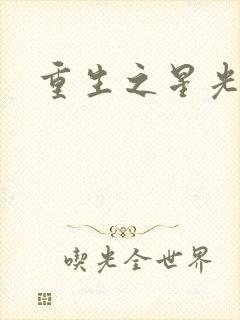 重生之星光
喫光全世界